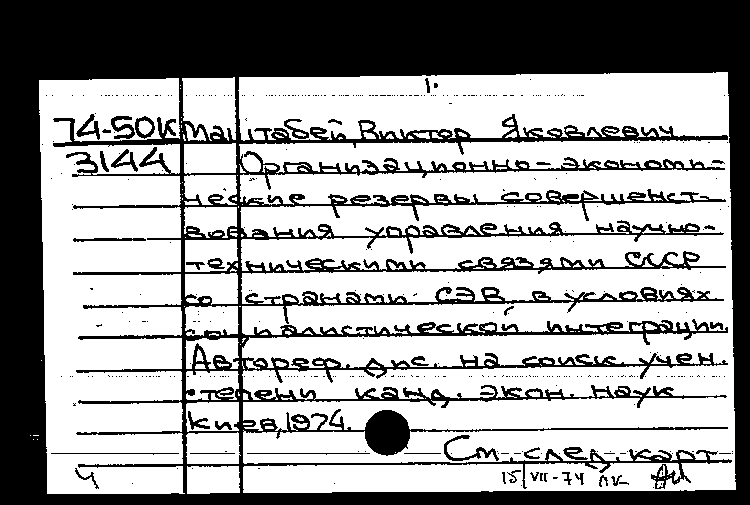 1.
74-50К Маштабей, Виктор Яковлевич
3144 Организационно-экономи-
ческие резервы совершенст-
вования управления научно-
техническими связями СССР
со странами СЭВ в условиях
социалистической интеграции.
Автореф. дис. на соиск. учен.
степени канд. экон. наук
Киев, 1974.
См. след. карт
15/VII-74 ПК